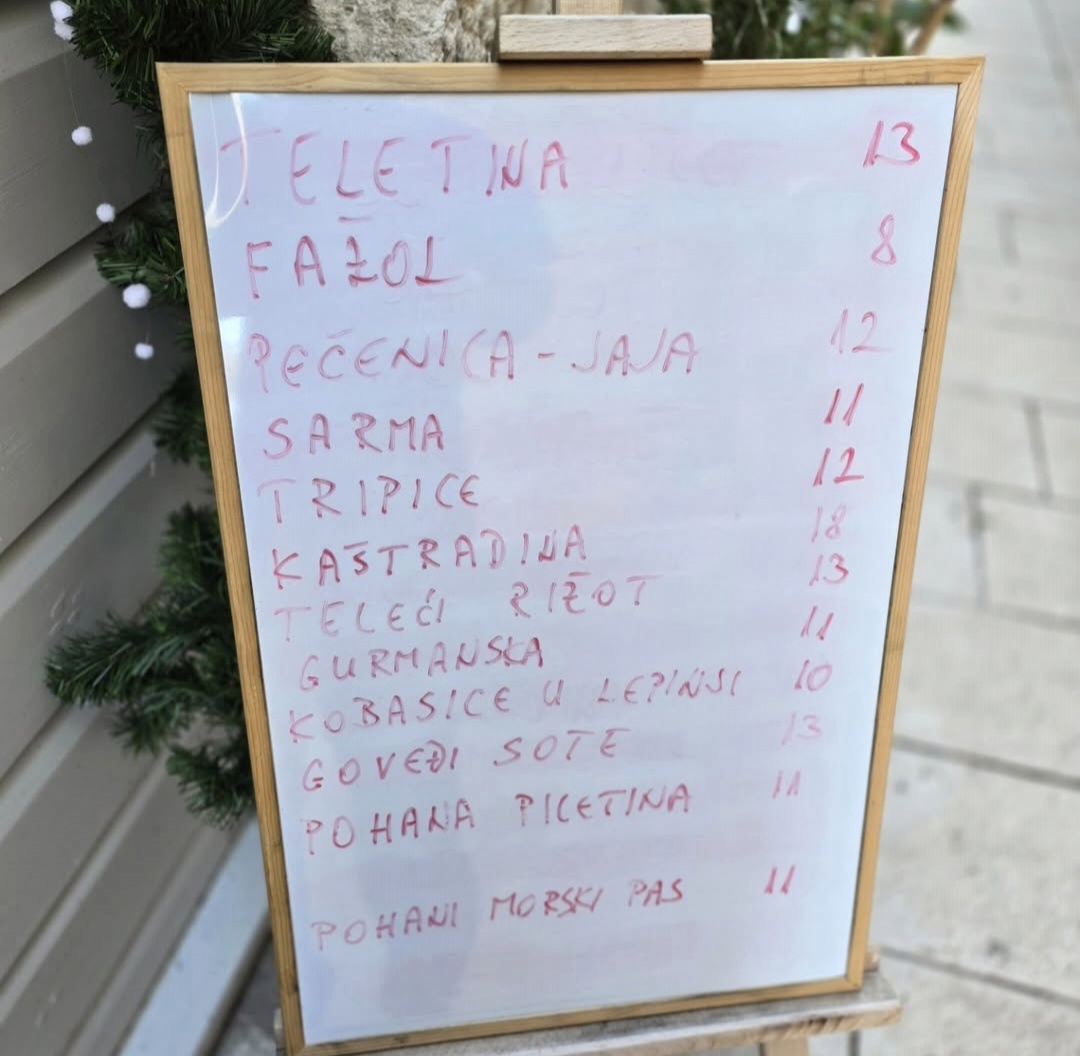 TELETINA 13
FAŽOL 8
PEČENICA - JAJA 12
SARMA 11
TRIPICE 12
KAŠTRADINA 18
TELEĆI RIŽOT 13
GURMANSKA 11
KOBASICE U LEPINJI 10
GOVEĐI SOTE 13
POHANA PICETINA 11
POHANI MORSKI PAS 11